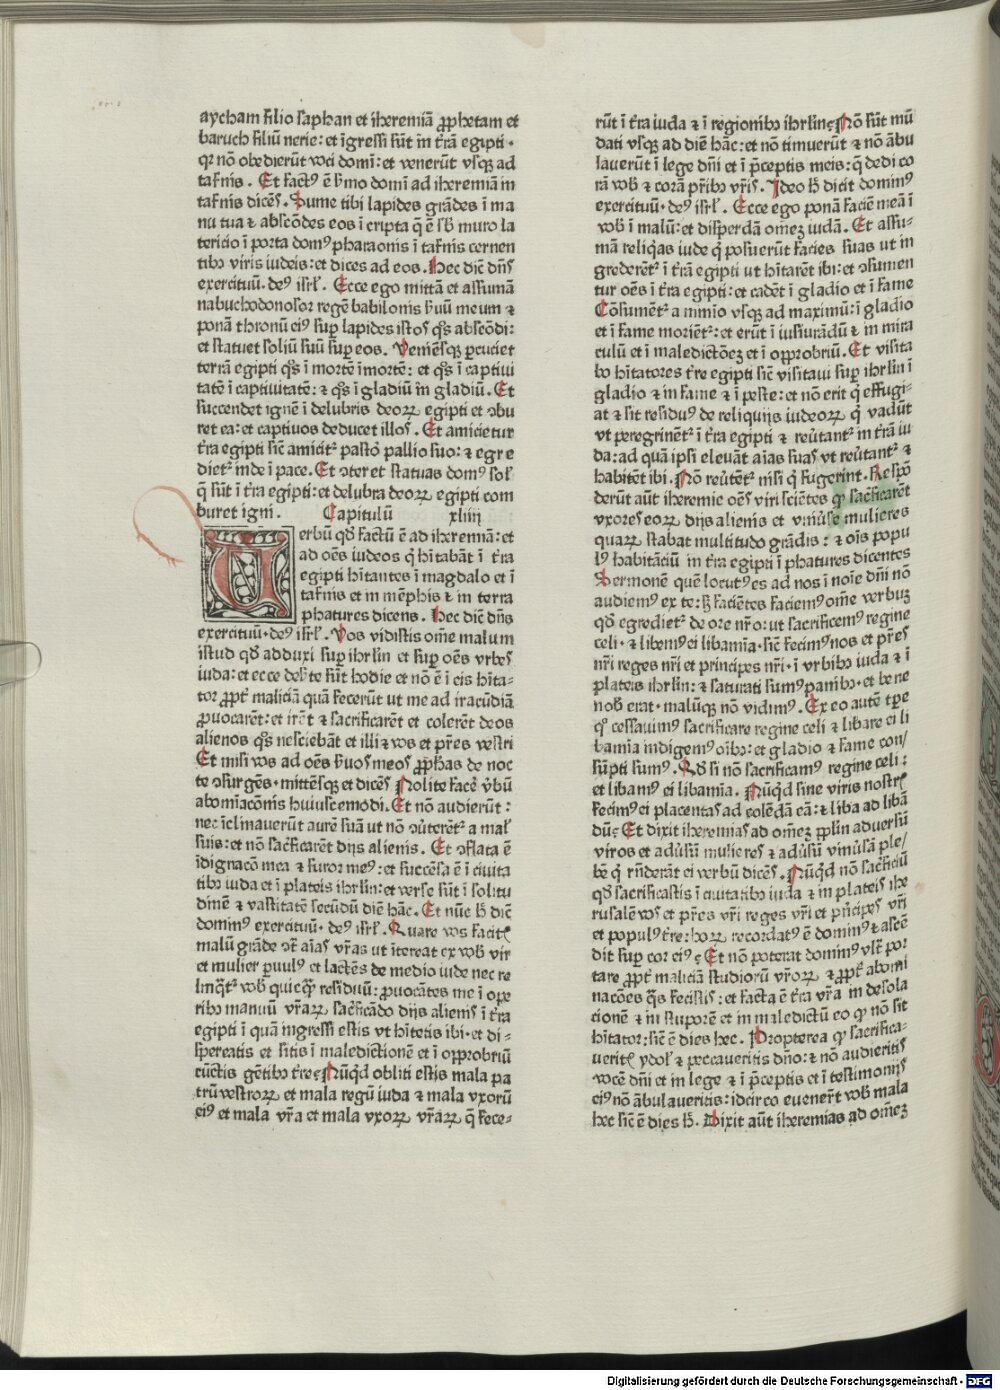 aycham filio saphan et iheremiā ꝓphetam et
baruch filiū nerie: et īgressi sūt in t̄rā egipti·
qꝛ nō obedierūt voci domī: et venerūt vsqꝫ ad
tafnis. Et factꝰ ē ẜmo domī ad iheremiā in
tafnis dicēs. Sume tibi lapides grādes ī ma
nu tua ⁊ abscōdes eos ī cripta q̄ ē sb̄ muro la
tericio ī porta domꝰ pharaonis ī tafnis cernen
tibꝰ viris iudeis: et dices ad eos. Hec dic̄ dn̄s
exercituū. deꝰ isrł. Ecce ego mittā et assumā
nabuchodonosor regē babilonis ẜuū meum ⁊
ponā thronū eiꝰ sup̄ lapides istos qs̄ abscōdi:
et statuet soliū suū sup̄ eos. Veniēsqꝫ ꝑcuciet
terrā egipti qs̄ ī mortē īmortē: et qs̄ ī captiui
tatē ī captiuitatē: ⁊ qs̄ ī gladiū in gladiū. Et
succendet ignē ī delubris deoꝝ egipti et ↄbu
ret ea: et captiuos deducet illos. Et amicietur
t̄ra egipti sic̄ amicit᷑ pastor pallio suo: ⁊ egre
diet᷑ inde ī pace. Et ↄteret statuas domꝰ soł
q̄ sūt ī t̄ra egipti: et delubra deoꝝ egipti com
buret igni. Capitulū xliiij
Verbū qd̄ factū ē ad iheremiā: et
ad oēs iudeos q̇ hītabāt ī t̄ra
egipti hītantes ī magdalo et ī
tafnis et in mēphis ⁊ in terra
phatures dicens. Hec dic̄ dn̄s
exercituū· deꝰ isrł. Vos vidistis om̄e malum
istud qd̄ adduxi sup̄ ihrlm̄ et sup̄ oēs vrbes
iuda: et ecce deẜte sūt hodie et nō ē ī eis hīta-
tor ꝓpt̄ maliciā quā fecerūt ut me ad iracūdiā
ꝓuocarēt: et irēt ⁊ sacrificarēt et colerēt deos
alienos qs̄ nesciebāt et illi ⁊ vos et pr̄es vestri
Et misi vos ad oēs ẜuos meos ꝓphas de noc
te ↄsurgēs· mittēsqꝫ et dicēs Nolite facē v̄bū
abomīacōnis huiuscemodi. Et nō audierūt:
nec īclinauerūt aurē suā ut nō ↄūterēt᷑ a mał
suis: et nō sac̄ficarēt dijs alienis. Et ↄflata ē
īdignacō mea ⁊ furor meꝰ: et succēsa ē ī ciuita
tibꝰ iuda et ī plateis ihrlm̄: et verse sūt ī solitu
dinē ⁊ vastitatē secūdū diē hāc. Et nūc h̄ dic̄
dominꝰ exercituū· deꝰ isrł. Quare vos facitꝭ
malū grāde ↄt̄ aīas vr̄as ut ītereat ex vob̄ vir
et mulier ꝑuulꝰ et lactēs de medio iude nec re
linq̇t᷑ vob̄ quicq̄ residuū: ꝓuocātes me ī ope
ribꝰ manuū vr̄aꝝ sac̄ficādo dijs alienis ī t̄ra
egipti ī quā ingressi estis vt hītetis ibi· et di-
sꝑeatis et sitis ī maledictionē et ī opprobriū
cūctis gētibꝰ t̄re Nūq̇d obliti estis mala pa
trū vestroꝝ et mala regū iuda ⁊ mala vxorū
eiꝰ et mala vr̄a et mala vxoꝝ vr̄aꝝ q̄ fece-
rūt ī t̄ra iuda ⁊ ī regionibꝰ ihrlm̄ Nō sūt mū
dati vsqꝫ ad diē hāc: et nō timuerūt ⁊ nō ābu
lauerūt ī lege dn̄i et ī p̄ceptis meis: q̄ dedi co
rā vob̄ ⁊ corā pr̄ibꝰ vr̄is. Ideo h̄ dicit dominꝰ
exercituū· deꝰ isrł. Ecce ego ponā faciē meā ī
vob̄ ī malū: et disperdā om̄eꝫ iudā. Et assu-
mā reliq̇as iude q̇ posuerūt facies suas ut in
grederēt᷑ ī t̄rā egipti ut hītarēt ibi: et ↄsumen
tur oēs ī t̄ra egipti: et cadēt ī gladio et ī fame
Cōsumēt᷑ a minīo vsqꝫ ad maximū: ī gladio
et ī fame moriēt᷑: et erūt ī iusiurādū ⁊ in mira
culū et ī maledictōeꝫ et ī opprobriū. Et visita
bo hītatores t̄re egipti sic̄ visitaui sup̄ ihrlm̄ ī
gladio ⁊ in fame ⁊ ī peste: et nō erit q̇ effugi-
at ⁊ sit residuꝰ de reliquijs iudeoꝝ q̇ vadūt
vt peregrinēt᷑ ī t̄ra egipti ⁊ reūtant᷑ in t̄rā iu
da: ad quā ipsi eleuāt aīas suas vt reūtant᷑ ⁊
habitēt ibi. Nō reūtēt᷑ nisi q̇ fugerint. Respō
derūt aūt iheremie oēs viri sciētes qꝫ sac̄ficarēt
vxores eoꝝ dijs alienis et vniūse mulieres
quaꝝ stabat multitudo grādis: ⁊ oīs popu
lꝰ habitāciū in t̄ra egipti ī phatures dicentes
Sermonē quē locutꝰ es ad nos ī noīe dn̄i nō
audiemꝰ ex te: sꝫ faciētes faciemꝰ om̄e verbuꝫ
qd̄ egrediet᷑ de ore nr̄o: ut sacrificemꝰ regine
celi· ⁊ libemꝰ ei libamīa· sic̄ fecimꝰ nos et pr̄es
nr̄i reges nr̄i et principes nr̄i· ī vrbibꝰ iuda ⁊ ī
plateis ihrlm̄: ⁊ saturati sumꝰ panibꝰ· et bene
nob̄ erat· malūqꝫ nō vidimꝰ. Ex eo autē tp̄e
qꝰ cessauimꝰ sacrificare regine celi ⁊ libare ei li
bamīa indigemꝰ oībꝰ: et gladio ⁊ fame con/
sūpti sumꝰ. Qd̄ si nō sacrificamꝰ regine celi:
et libamꝰ ei libamīa. Nūq̇d sine viris nostrꝭ
fecimꝰ ei placentas ad colēdā eā: ⁊ liba ad libā
dū Et dixit iheremias ad om̄eꝫ pp̄lm̄ aduersū
viros et adūsū mulieres ⁊ adūsū vniūsā ple/
bē q̄ rn̄derāt ei verbū dicēs. Nūq̇d nō sac̄ficiū
qd̄ sacrificastis ī ciuitatibꝰ iuda ⁊ in plateis ihe
rusalē vos et pr̄es vr̄i reges vr̄i et pn̄cipes vr̄i
et populꝰ t̄re: hoꝝ recordatꝰ ē dominꝰ ⁊ ascē
dit sup̄ cor eiꝰ Et nō poterat dominꝰ vlt̄ por
tare ꝓpt̄ maliciā studiorū vr̄oꝝ ⁊ ꝓpt̄ abomi
nacōes q̄s fecistis: et facta ē t̄ra vr̄a in desola
cionē ⁊ in stuporē et in maledictū eo qꝫ nō sit
hītator: sic̄ ē dies hec. Propterea qꝫ sacrifica-
ueritꝭ ydoł ⁊ peccaueritis dn̄o: ⁊ nō audieritis
vocē dn̄i et in lege ⁊ ī p̄ceptis et ī testimonijs
eiꝰ nō ābulaueritis: idcirco euenerūt vob̄ mala
hec sic̄ ē dies h̄. Dixit aūt iheremias ad om̄eꝫ
Digitalisierung gefördert durch die Deutsche Forschungsgemeinschaft - DFG